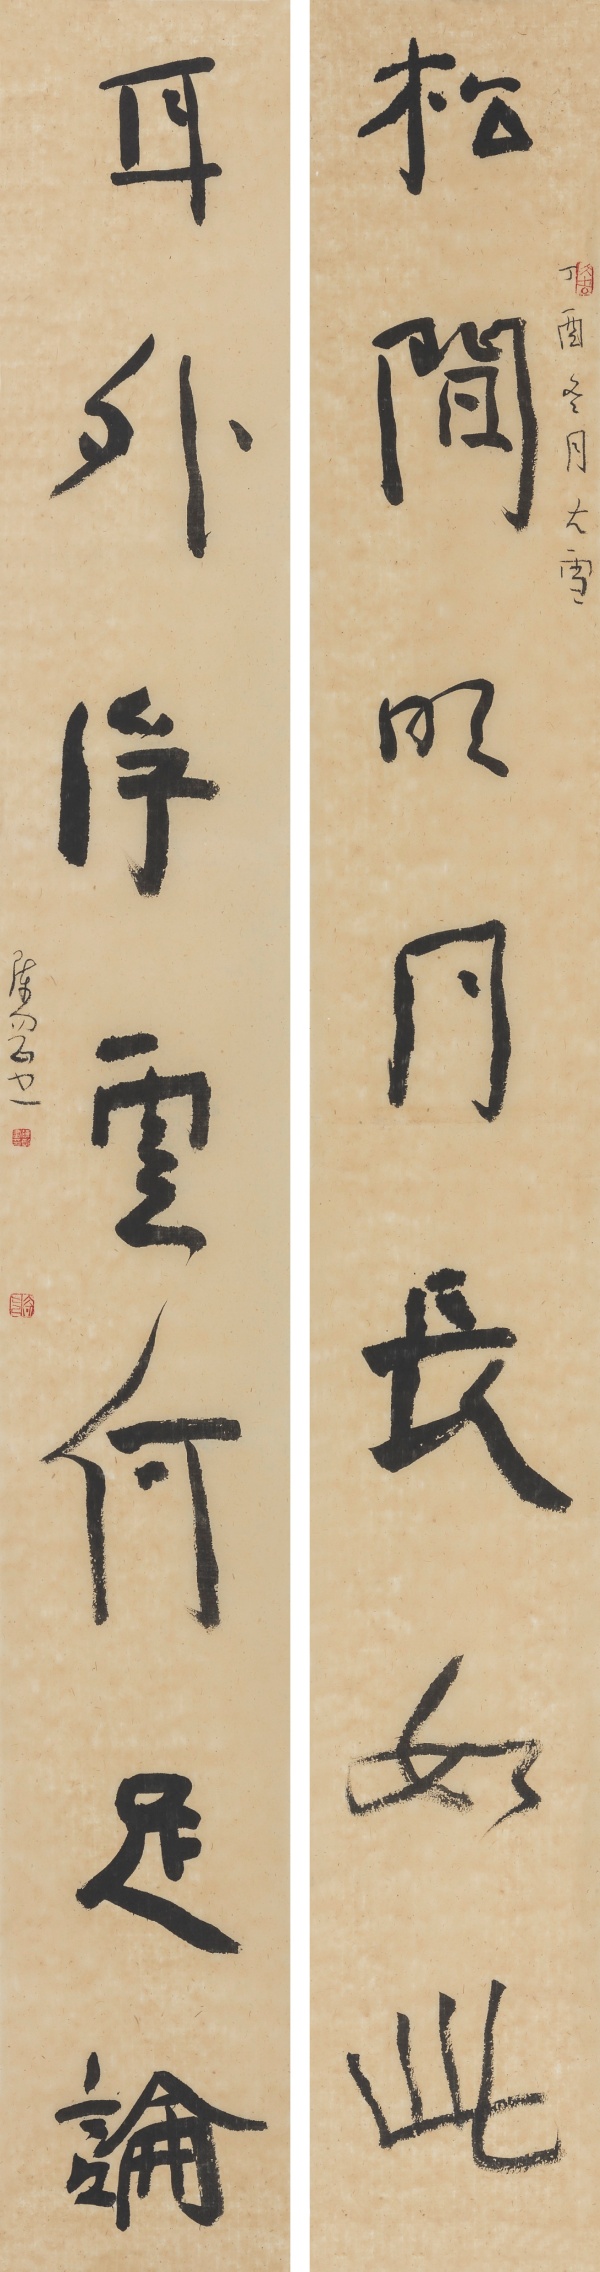 丁酉冬月大雪
松間明月長如此
耳外浮雲何足論